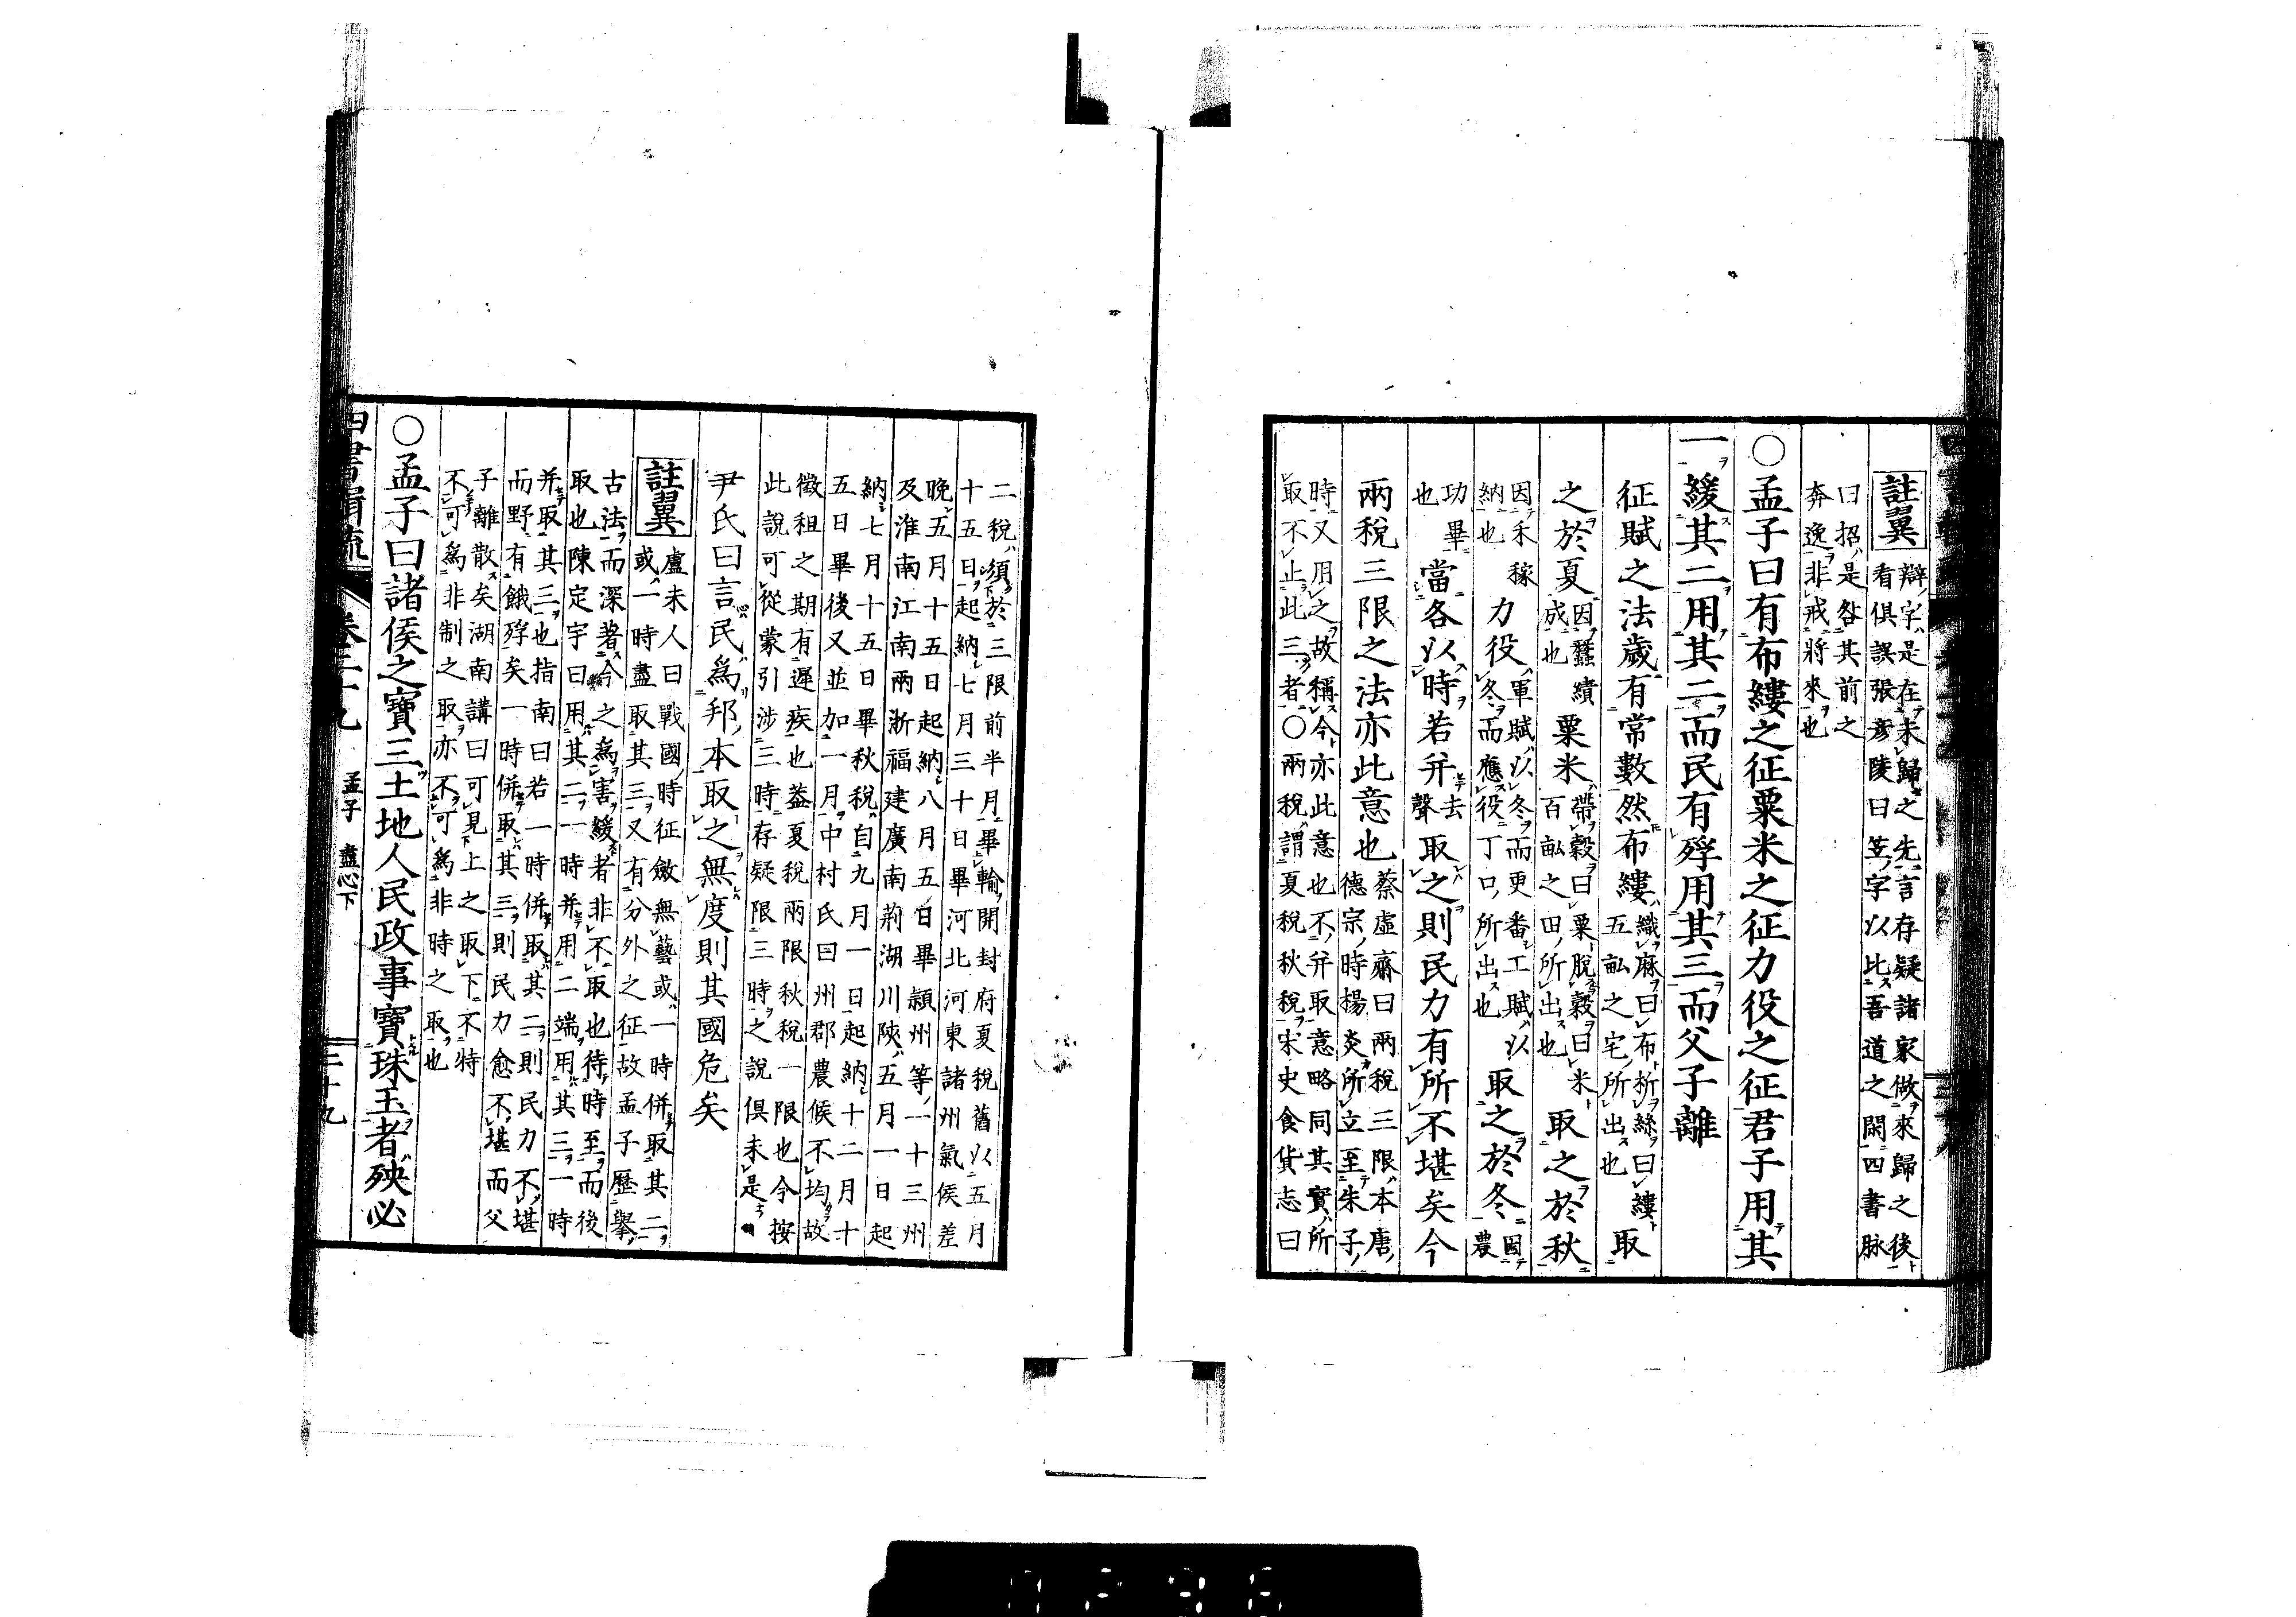 註翼 辯字是在未歸之先言存疑諸家做來歸之後
看俱誤張彥陵曰苙字以比吾道之閑四書脉
曰招是咎其前之
奔逸非戒將來也
○孟子曰有布縷之征粟米之征力役之征君子用其
一緩其二用其二而民有殍用其三而父子離
征賦之法歲有常數然布縷 織麻曰布析絲曰縷 五畝之宅所出也 取
之於夏 因蠶績 成也 粟米 帶穀曰粟脫穀曰米 百畝之田所出也 取之於秋
因禾稼 納也 力役 軍賦以冬而更番工賦以 冬而應役丁口所出也 取之於冬 因 農
功畢 也 當各以時若幷 去 聲 取之則民力有所不堪矣今
兩稅三限之法亦此意也 蔡虛齋曰兩稅三限本唐
德宗時楊炎所立至朱子
時又用之故稱今亦此意也不幷取意略同其實所
取不止此三者○兩稅謂夏稅秋稅宋史食貨志曰
二稅須於三限前半月畢輸開封府夏稅舊以五月
十五日起納七月三十日畢河北河東諸州氣候差
晚五月十五日起納八月五日畢潁州等一十三州
及淮南江南兩浙福建廣南荊湖川陝五月一日起
納七月十五日畢秋稅自九月一日起納十二月十
五日畢後又並加一月中村氏曰州郡農候不均故
徵租之期有遲疾也蓋夏稅兩限秋稅一限也今按
此說可從蒙引涉三時存疑限三時之說俱未是
尹氏曰言民爲邦本取之無度則其國危矣
註翼 盧未人曰戰國時征斂無藝或一時併取其二
或一時盡取其三又有分外之征故孟子歷舉
古法而深著今之爲害緩者非不取也待時至而後
取也陳定宇曰用其二一時幷用二端用其三一時
幷取其三也指南曰若一時併取其二則民力不堪
而野有餓殍矣一時併取其三則民力愈不堪而父
子離散矣湖南講曰可見上之取下不特
不可爲非制之取亦不可爲非時之取也
○孟子曰諸侯之寶三土地人民政事寶珠玉者殃必
孟子 盡心下